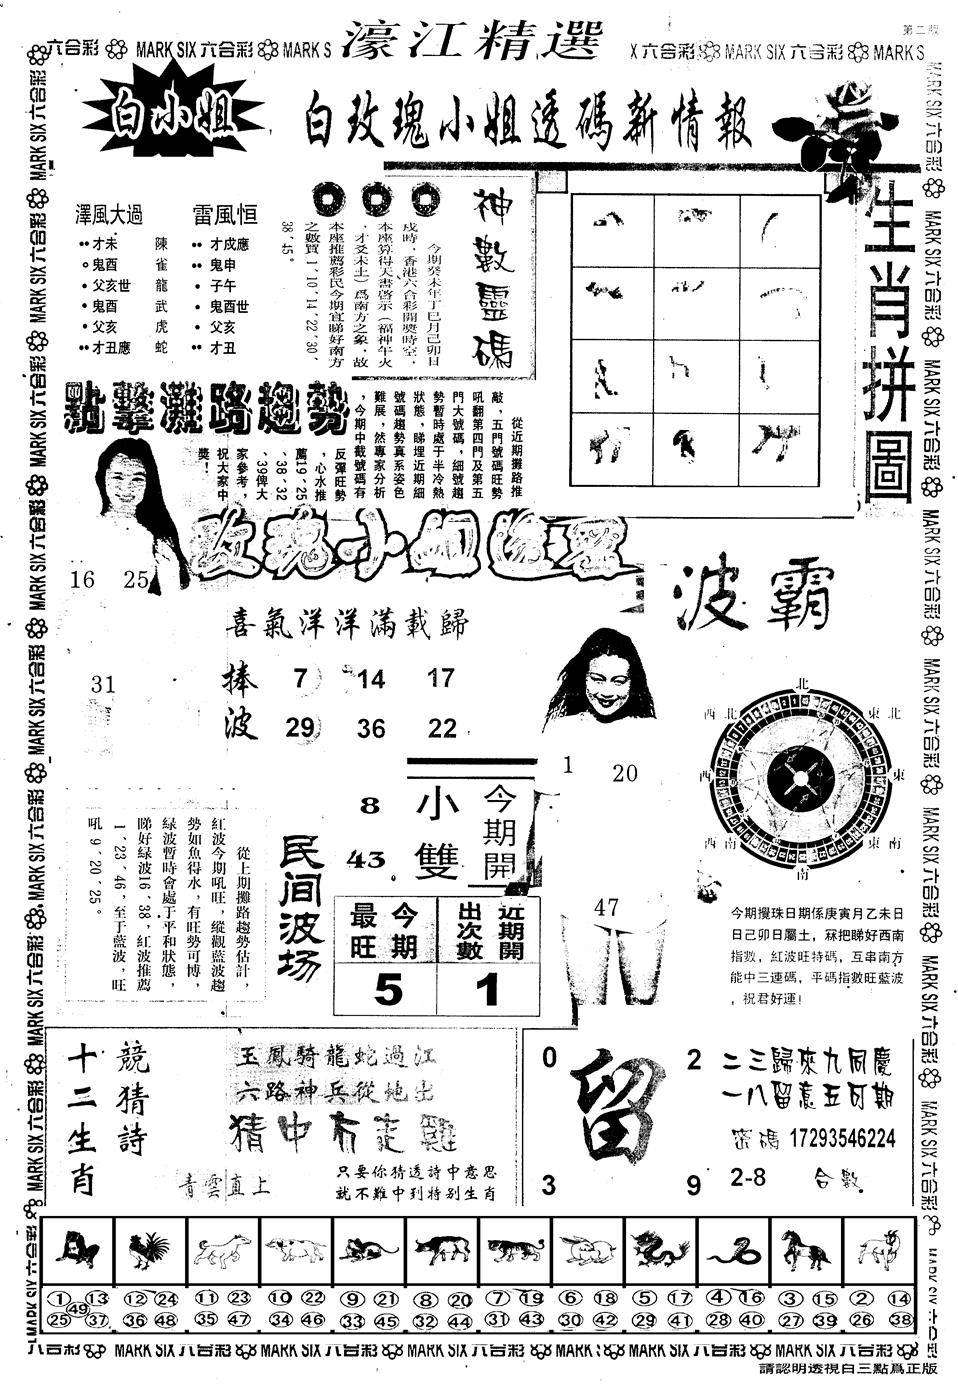 濠江精選
第二版
六合彩 MARK SIX 六合彩 MARK S
X 六合彩 MARK SIX 六合彩 MARK S
白小姐
白玫瑰小姐透碼新情報
澤風大過
才未 陳
鬼酉 雀
父亥世 龍
鬼酉 武
父亥 虎
才丑應 蛇
雷風恒
才戌應
鬼申
子午
鬼酉世
父亥
才丑
神數靈碼
今期癸未年丁巳月己卯日
戌時，香港六合彩開獎時空，
本座算得天書啓示（福神午火
，才爻未土）爲南方之象，故
本座推薦彩民今期宜睇好南方
之數買1、10、14、22、30、
38、45。
生肖拼圖
點擊灘路趨勢
從近期攤路推
敲，五門號碼旺勢
吼翻第四門及第五
門大號碼，細號趨
勢暫時處于半冷熱
狀態，睇埋近期細
號碼趨勢真系姿色
難展，然專家分析
，今期中截號碼有
反彈旺勢
，心水推
薦19、25
、38、32
、39俾大
家參考，
祝大家中
獎！
16 25
31
喜氣洋洋滿載歸
捧波
7 14 17
29 36 22
波霸
1 20
47
北
東北
東
東南
南
西南
西
西北
今期攪珠日期係庚寅月乙未日
日己卯日屬土，冧把睇好西南
指數，紅波旺特碼，互串南方
能中三連碼，平碼指數旺藍波
，祝君好運！
民间波场
從上期攤路趨勢估計，
紅波今期吼旺，縱觀藍波趨
勢如魚得水，有旺勢可博，
緑波暫時會處于平和狀態，
睇好緑波16、38，紅波推薦
1、23、46，至于藍波，旺
吼9、20、25。
今期開
小雙
8
43
今期最旺
5
近期開出次數
1
十二生肖
競猜詩
玉鳳騎龍蛇過江
六路神兵從地出
青雲直上
只要你猜透詩中意思
就不難中到特别生肖
0 2
留
3 9
二三歸來九同慶
一八留意五可期
密碼 17293546224
2-8 合數
1 13 49 25 37
12 24 36 48
11 23 35 47
10 22 34 46
9 21 33 45
8 20 32 44
7 19 31 43
6 18 30 42
5 17 29 41
4 16 28 40
3 15 27 39
2 14 26 38
六合彩 MARK SIX 六合彩 MARK SIX 六合彩 MARK SIX 六合彩 MARK SIX 六合彩
請認明透視白三點爲正版